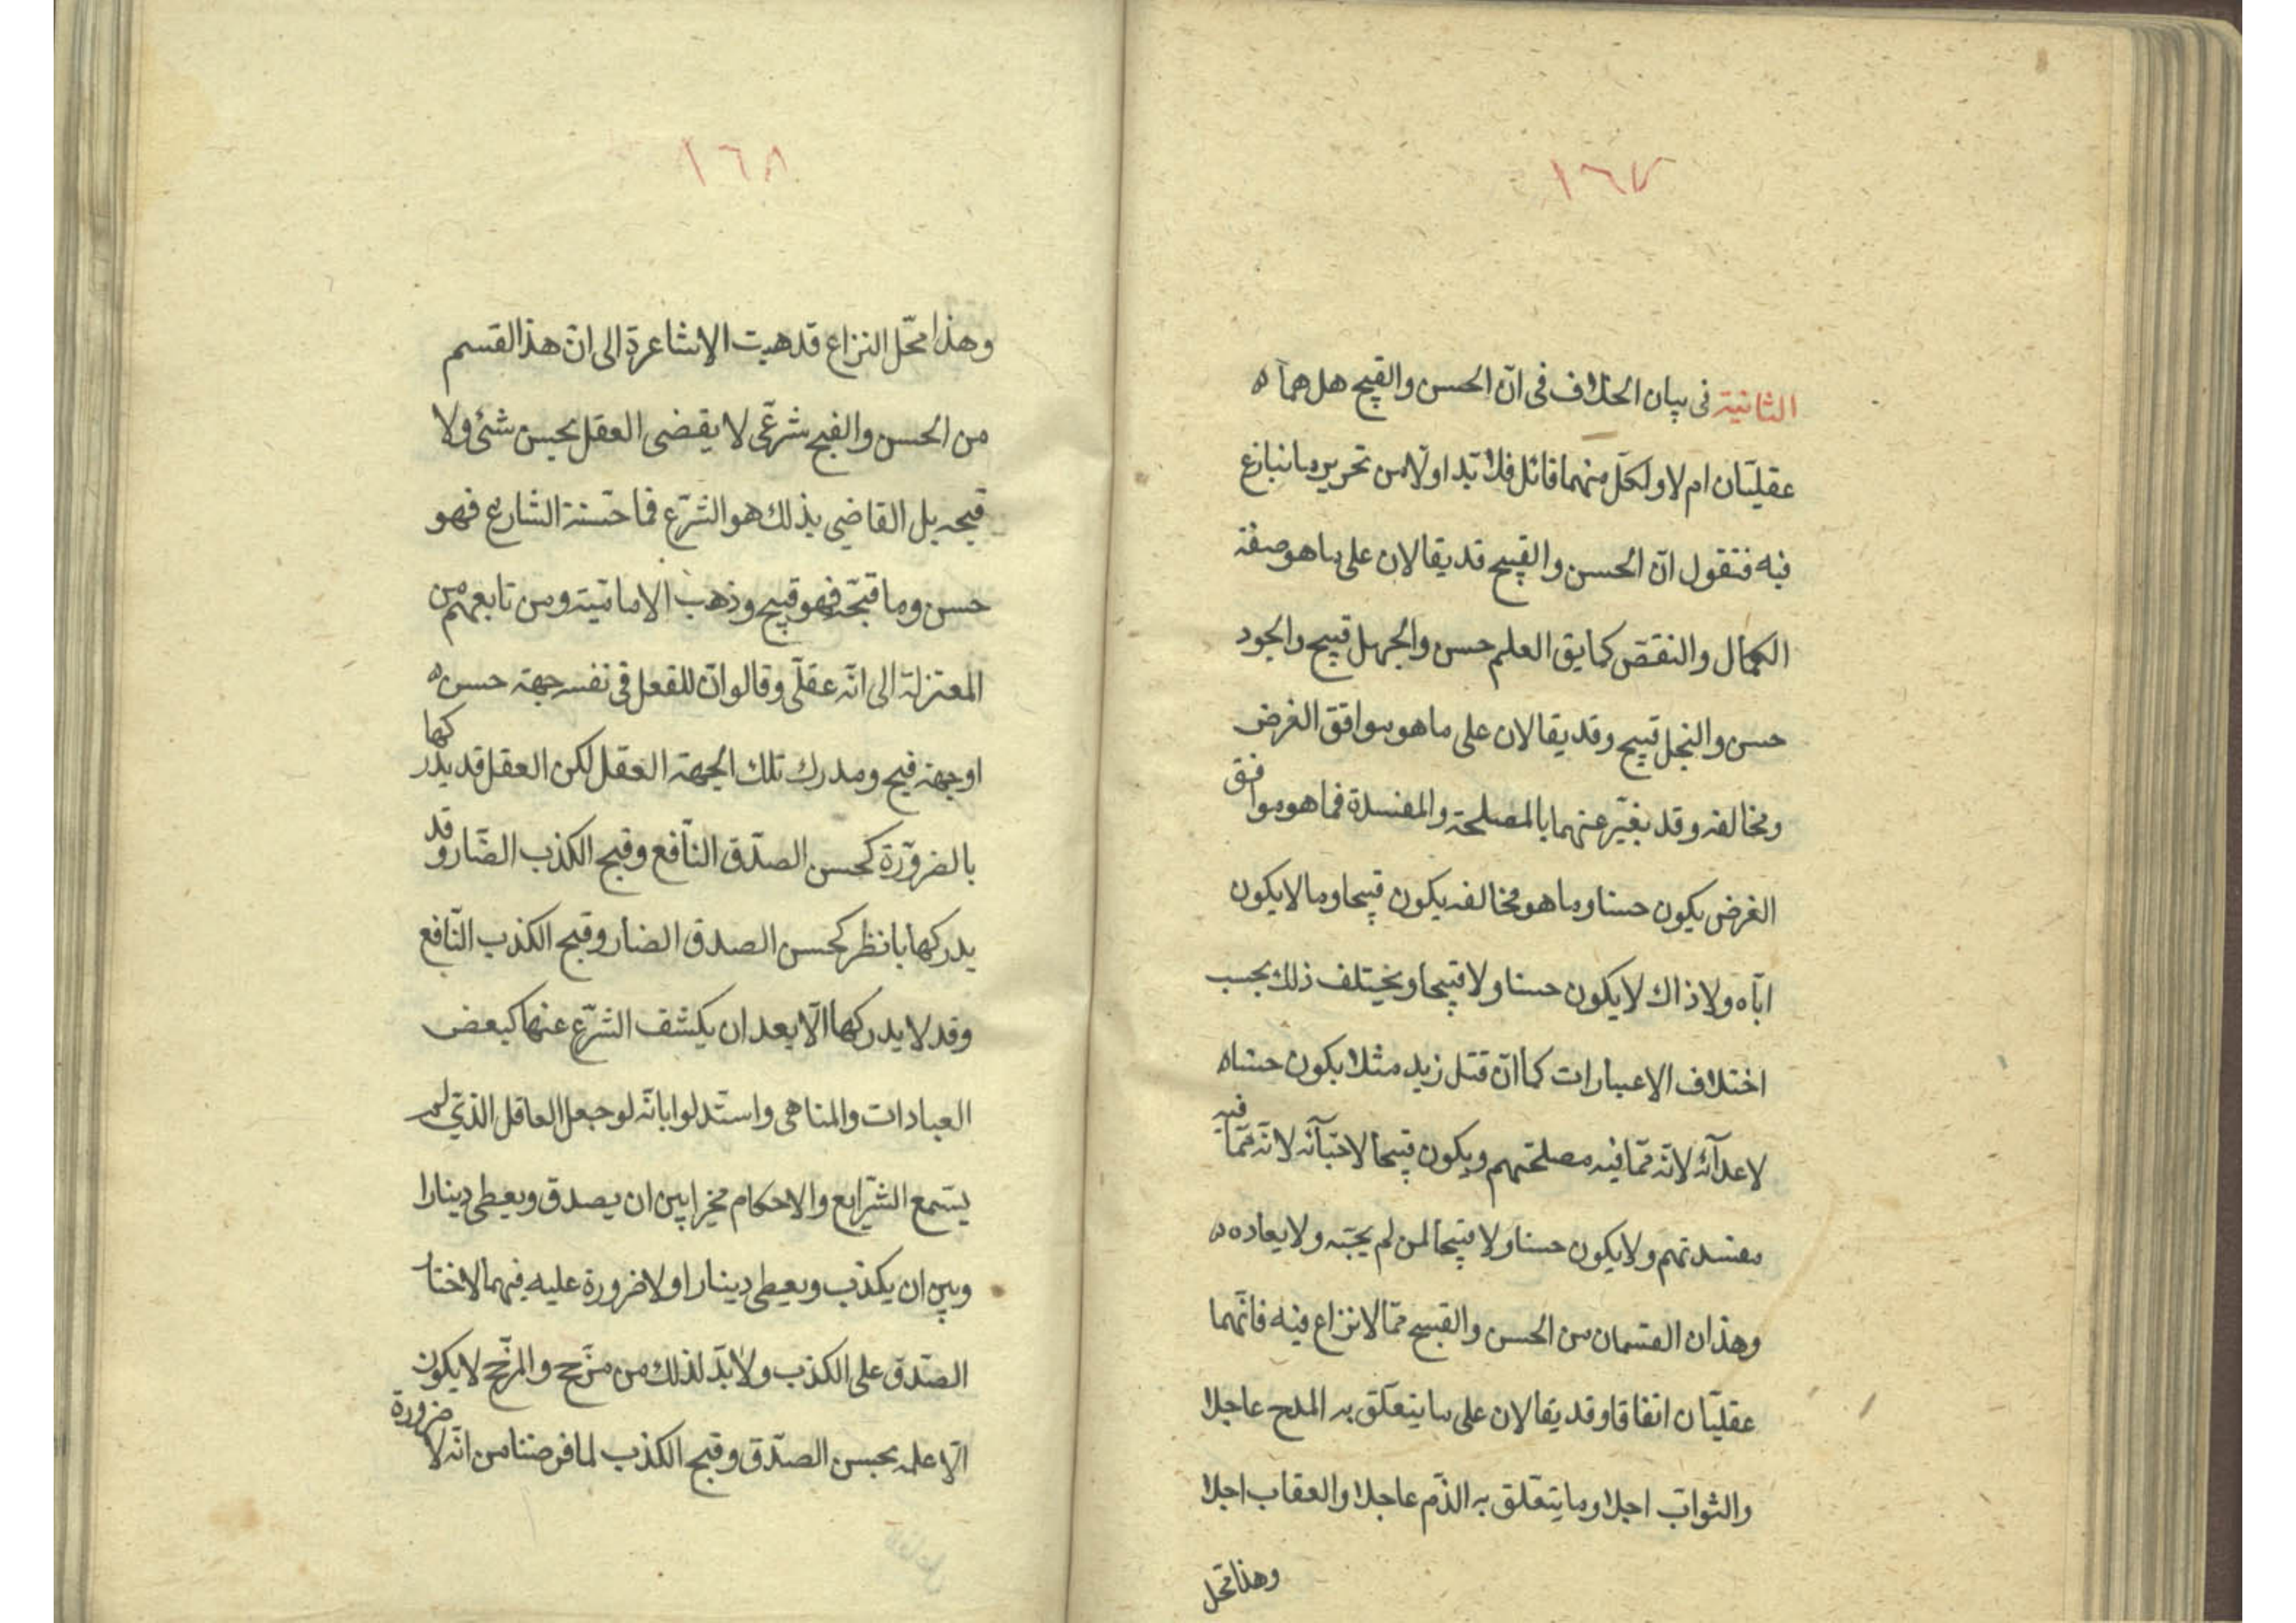 ١٦٧
الثانية فى بيان الخلاف فى انّ الحسن والقبح هل هما ه
عقليّان ام لا ولكلّ منهما قائل فلا بدّ اوّلا من تحرير ما نتنازع
فيه فنقول انّ الحسن والقبيح قد يقالان على ما هو صفة
الكمال والنقص كما يق العلم حسن والجهل قبيح والجود
حسن والبخل قبيح وقد يقالان على ما هو موافق الغرض
ومخالفه وقد يعبّر عنهما بالمصلحة والمفسدة فما هو موافق
الغرض يكون حسنا وما هو مخالفه يكون قبيحا وما لا يكون
ايّاه ولا ذاك لا يكون حسنا ولا قبيحا ويختلف ذلك بحسب
اختلاف الاعتبارات كما انّ قتل زيد مثلا يكون حسنا ه
لاعدآئه لانّه ممّا فيه مصلحتهم ويكون قبيحا لاحبّآئه لانّه ممّا فيه
مفسدتهم ولا يكون حسنا ولا قبيحا لمن لم يحبّه ولا يعاده ه
وهذان القسمان من الحسن والقبيح ممّا لا نزاع فيه فانّهما
عقليّان اتفاقا وقد يقالان على ما يتعلّق به المدح عاجلا
والثواب اجلا وما يتعلّق به الذّم عاجلا والعقاب اجلا
وهذا محل
١٦٨
وهذا محّل النزاع قد هبت الاشاعرة الى انّ هذا القسم
من الحسن والقبح شرعّى لا يقضى العقل بحسن شئى ولا
قبحه بل القاضي بذلك هو الشّرع فما حسّنة الشارع فهو
حسن وما قبّحه فهو قبيح وذهب الاماميّة ومن تابعهم من
المعتزلة الى انّه عقلّى وقالوا انّ للفعل فى نفسه جهة حسن ه
او جهة قبح ومدرك تلك الجهة العقل لكن العقل قد يدركها
بالضروّرة كحسن الصّدق النّافع وقبح الكذب الضّار وقد
يدركها بانظر كحسن الصدق الضار وقبح الكذب النّافع
وقد لا يدركها الّا بعد ان يكشف الشّرع عنها كبعض
العبادات والمناهى واستّدلوا بانّه لو جعل العاقل الذّي لم
يستمع الشّرايع والاحكام مخيرا بين ان يصدق ويعطى دينارا
وبين ان يكذب ويعطى دينارا ولا ضرورة عليه فيهما لاختار
الصّدق على الكذب ولا بدّ لذلك من مرّجح والمرّجح لا يكون
الّا علمه بحسن الصّدق وقبح الكذب لما فرضنا من انّه لا ضرورة